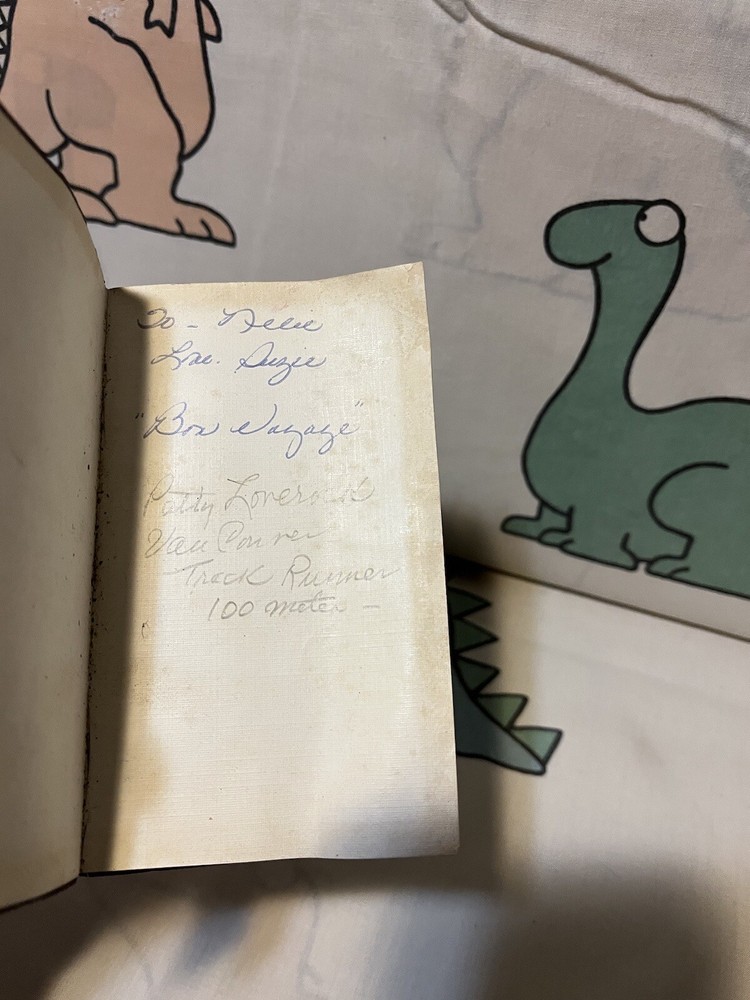 To - Nellie
Love. Suzie
"Bon Voyage"
Patty Loverock
Van Couver
Track Runner
100 meter -